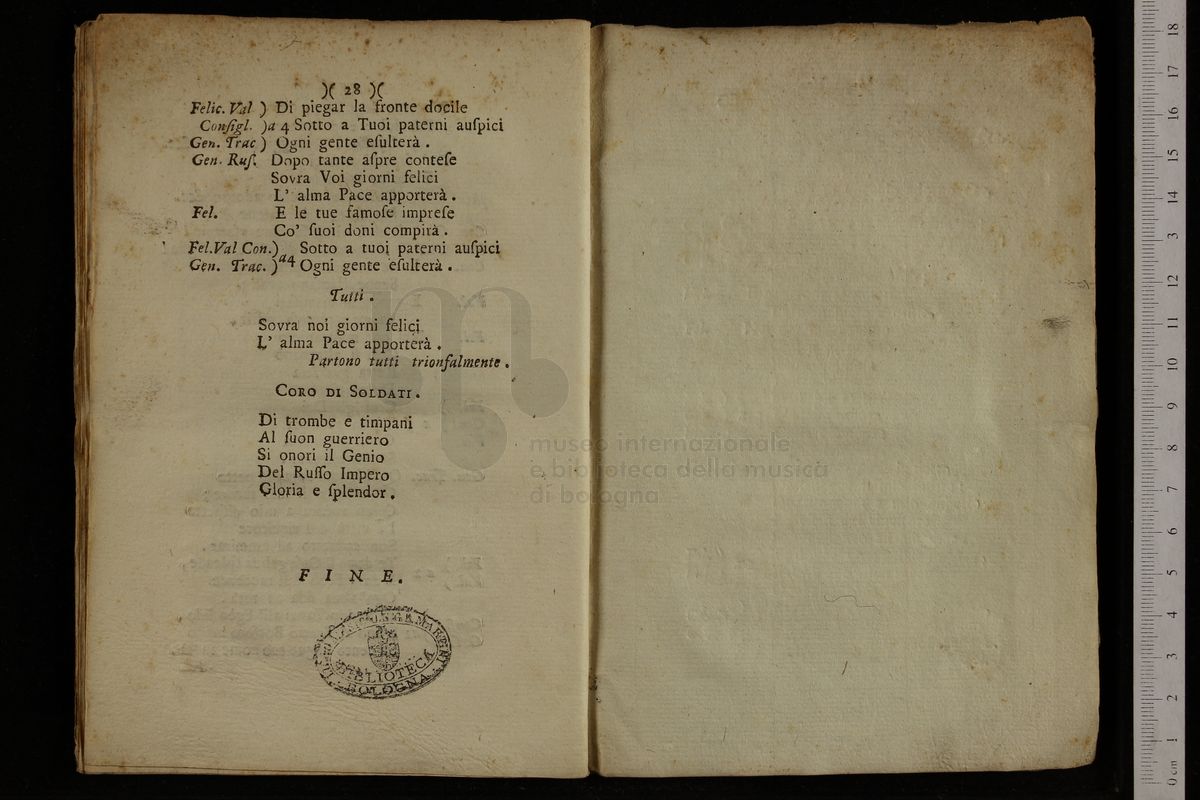 )( 28 )(
Felic. Val ) Di piegar la fronte docile
Conſigl. )a 4 Sotto a Tuoi paterni auſpici
Gen. Trac ) Ogni gente eſulterà .
Gen. Ruſ. Dopo tante aſpre conteſe
Sovra Voi giorni felici
L' alma Pace apporterà .
Fel. E le tue famoſe impreſe
Co' ſuoi doni compirà .
Fel.Val Con.) Sotto a tuoi paterni auſpici
Gen. Trac. )a4 Ogni gente eſulterà .
Tutti .
Sovra noi giorni felici
L' alma Pace apporterà .
Partono tutti trionfalmente .
CORO DI SOLDATI .
Di trombe e timpani
Al ſuon guerriero
Si onori il Genio
Del Ruſſo Impero
Gloria e ſplendor .
F I N E .
BIBLIOTECA
BOLOGNA
museo internazionale
e biblioteca della musica
di bologna
0 cm 1 2 3 4 5 6 7 8 9 10 11 12 13 14 15 16 17 18